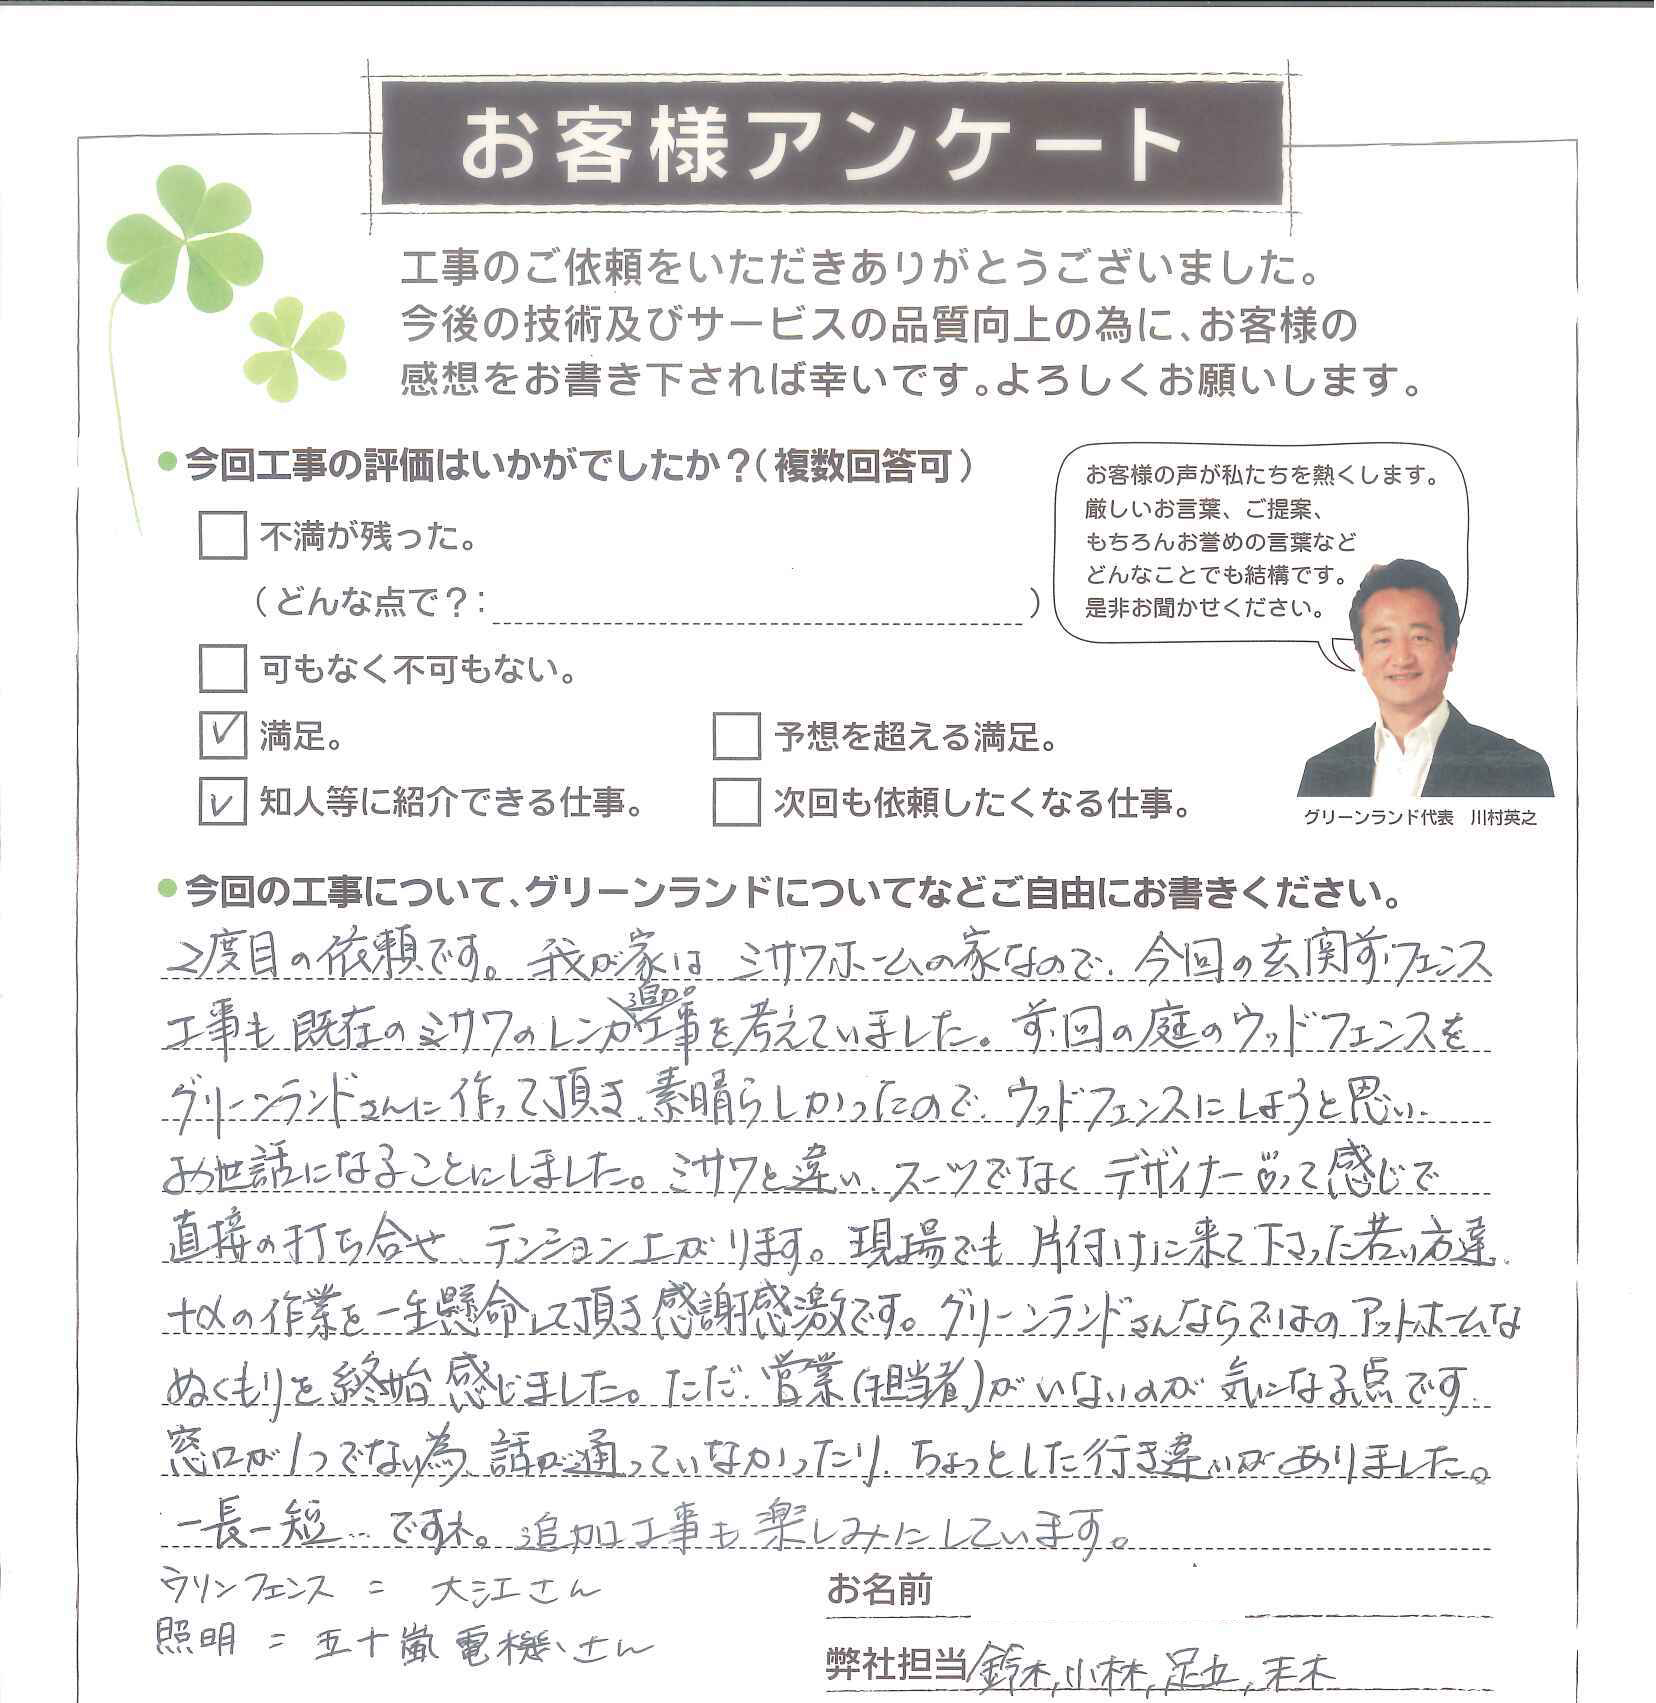 お客様アンケート
工事のご依頼をいただきありがとうございました。
今後の技術及びサービスの品質向上の為に、お客様の
感想をお書き下されば幸いです。よろしくお願いします。
今回工事の評価はいかがでしたか?(複数回答可)
不満が残った。
(どんな点で?: )
可もなく不可もない。
満足。
予想を超える満足。
知人等に紹介できる仕事。
次回も依頼したくなる仕事。
お客様の声が私たちを熱くします。
厳しいお言葉、ご提案、
もちろんお誉めの言葉など
どんなことでも結構です。
是非お聞かせください。
グリーンランド代表 川村英之
今回の工事について、グリーンランドについてなどご自由にお書きください。
2度目の依頼です。我が家はミサワホームの家なので、今回の玄関前フェンス
工事も既在のミサワのレンガ追加工事を考えていました。前回の庭のウッドフェンスを
グリーンランドさんに作って頂き、素晴らしかったので、ウッドフェンスにしようと思い、
お世話になることにしました。ミサワと違い、スーツでなくデザイナー♡って感じで
直接の打ち合せ、テンション上がります。現場でも片付けに来て下さった若い方達、
+αの作業を一生懸命して頂き感謝感激です。グリーンランドさんならではのアットホームな
ぬくもりを終始感じました。ただ、営業(担当者)がいないのが気になる点です。
窓口が1つでない為、話が通っていなかったり、ちょっとした行き違いがありました。
一長一短…ですネ。追加工事も楽しみにしています。
ウリンフェンス = 大江さん
照明 = 五十嵐電機さん
お名前
弊社担当 鈴木,小林,足立,末木